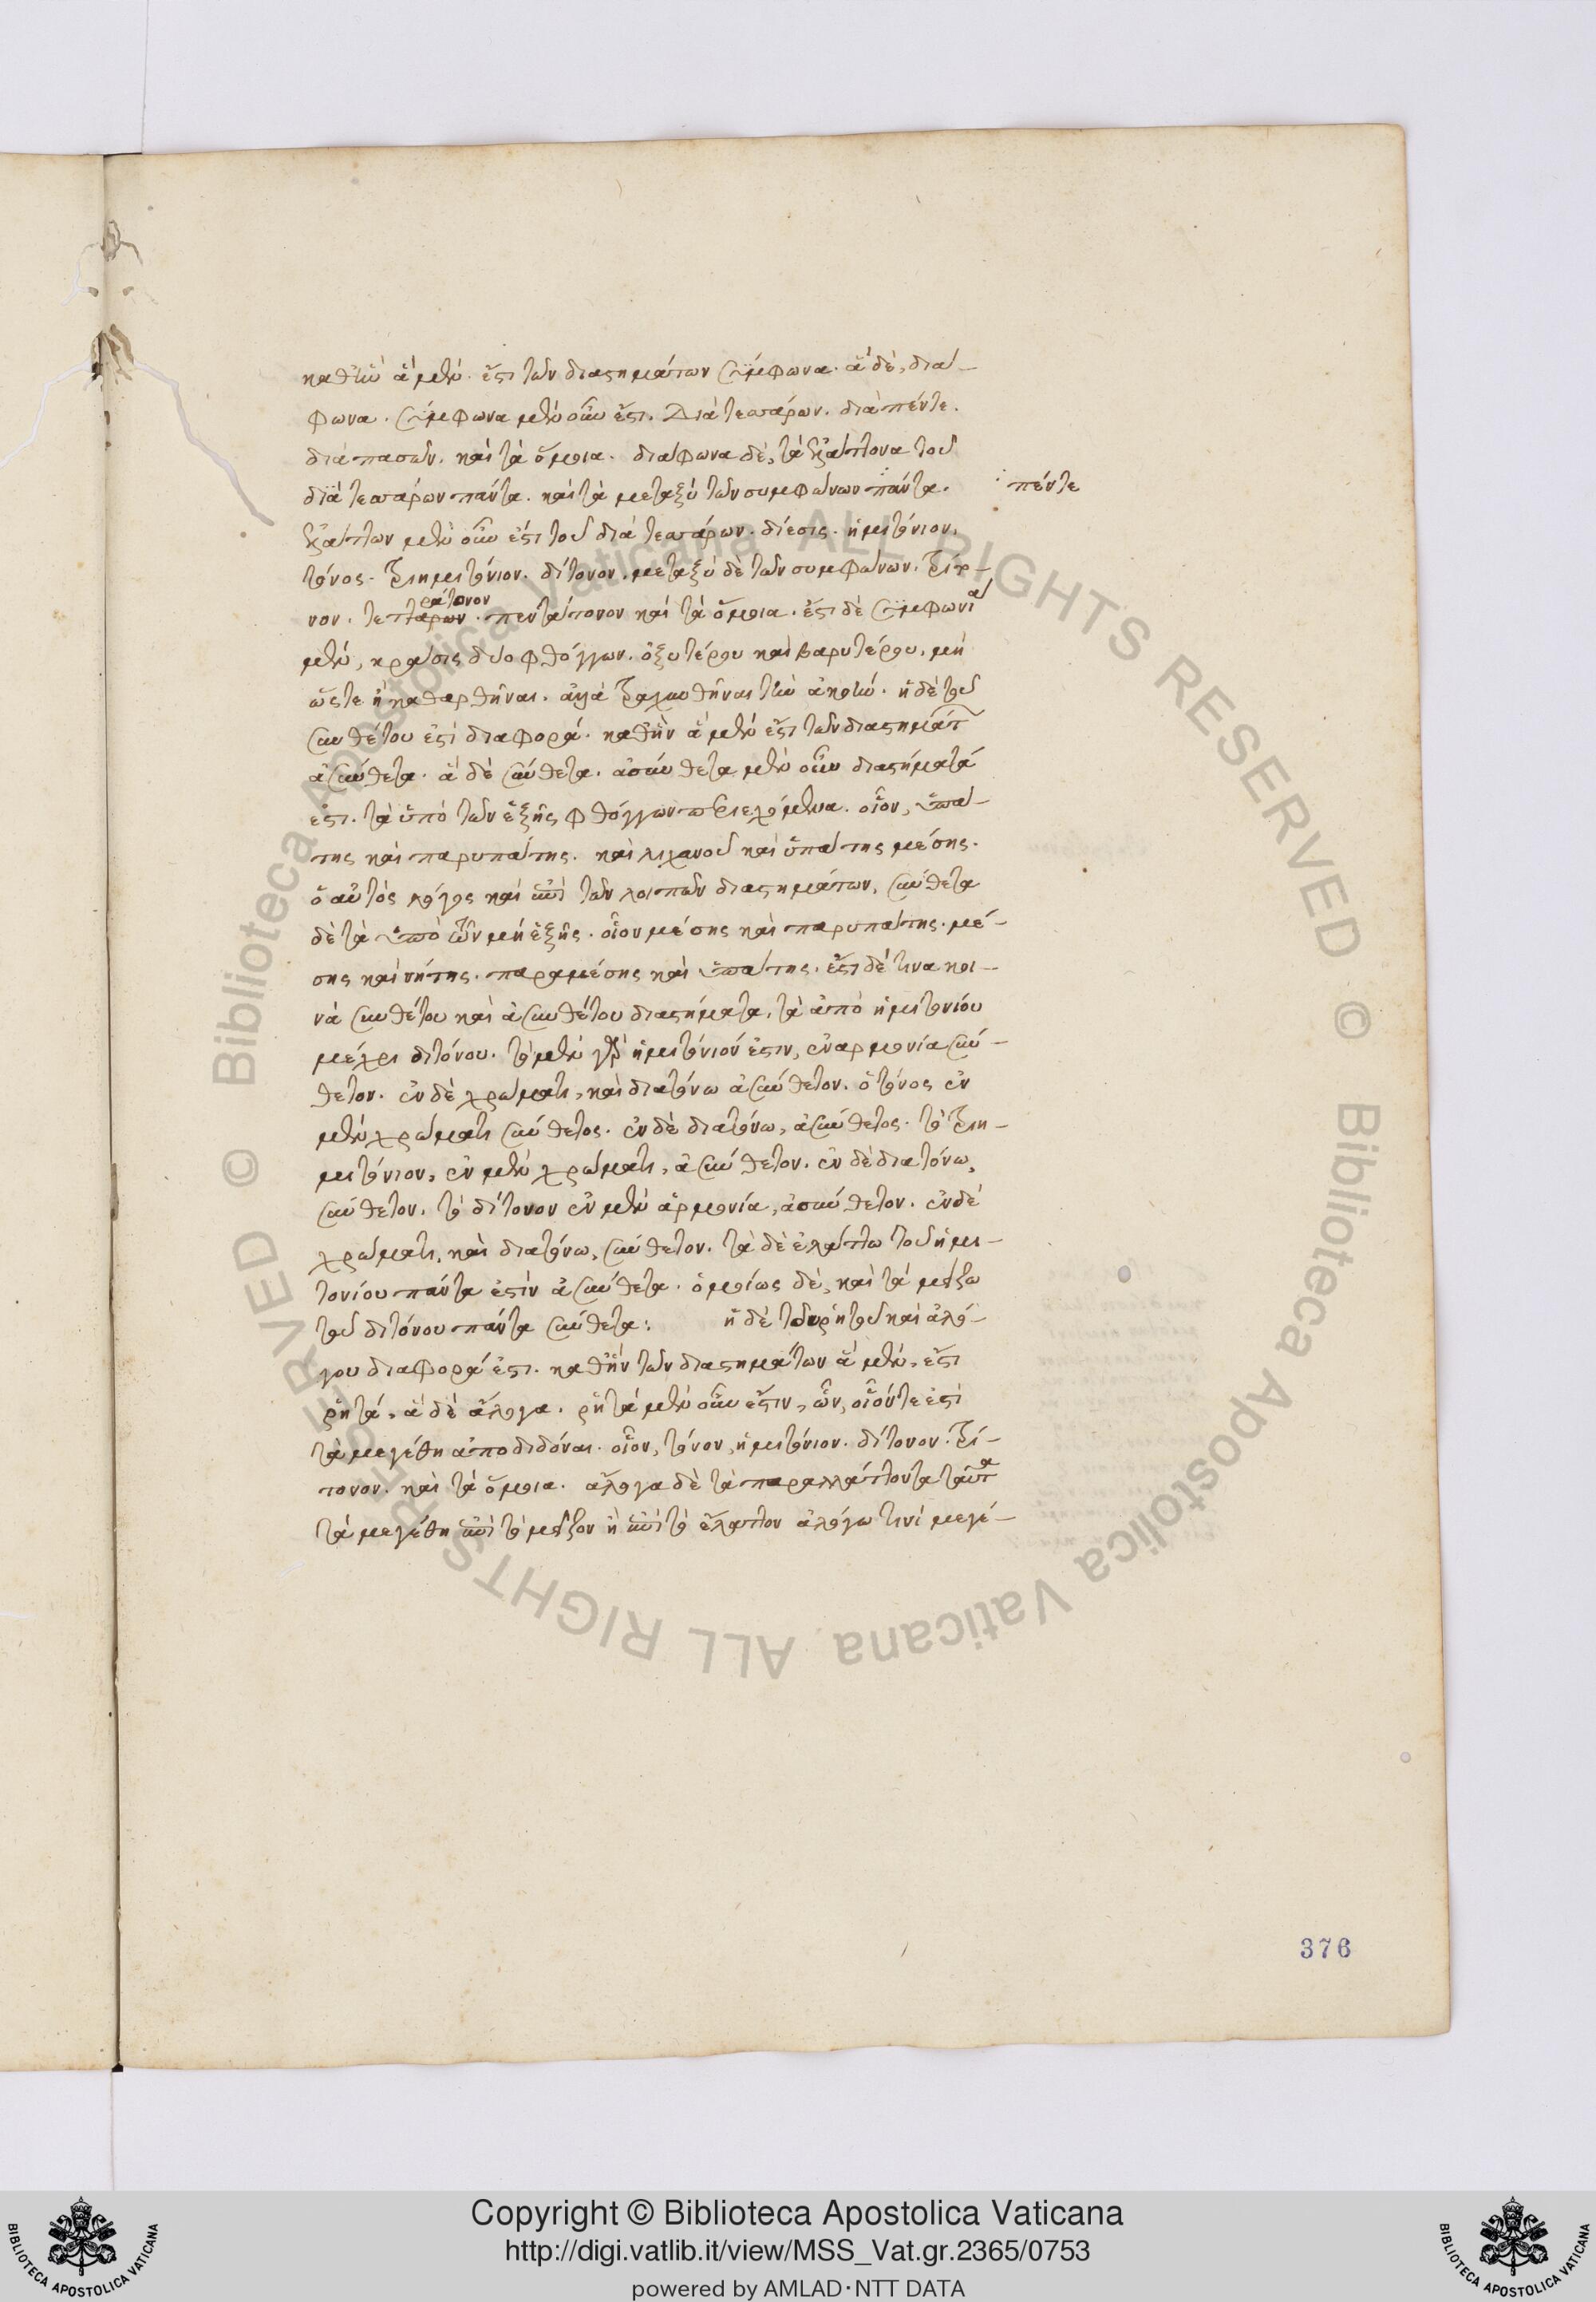 καθ' ἣν ἃ μέν ἐστι τῶν διαστημάτων σύμφωνα. ἃ δὲ, διά-
φωνα. σύμφωνα μὲν οὖν ἐστι. Διὰ τεσσάρων. διὰ πέντε.
διὰ πασῶν. καὶ τὰ ὅμοια. διάφωνα δὲ, τὰ ἐλάττονα τοῦ
διὰ τεσσάρων πάντα. καὶ τὰ μεταξὺ τῶν συμφώνων πάντα.
πέντε
ἐλάττων μὲν οὖν ἐστὶ τοῦ διὰ τεσσάρων. δίεσις. ἡμιτόνιον.
τόνος. τριημιτόνιον. δίτονον. μεταξὺ δὲ τῶν συμφώνων. τρίτο-
νον. τετταρων ράτονον. πεντάτονον καὶ τὰ ὅμοια. ἔστι δὲ συμφωνία
μὲν, κρᾶσις δύο φθόγγων. ὀξυτέρου καὶ βαρυτέρου. μὴ
ὥστε ἡ καθαρθῆναι. ἀλλὰ τραχυνθῆναι τὴν ἀκοήν. ἡ δὲ τοῦ
συνθέτου ἐστὶ διαφορά. καθ' ἣν ἃ μέν ἐστι τῶν διαστημάτ
ἀσύνθετα. ἃ δὲ σύνθετα. ἀσύνθετα μὲν οὖν διαστήματά
ἐστι. τὰ ὑπὸ τῶν ἑξῆς φθόγγων περιεχόμενα. οἷον, ὑπά-
της καὶ παρυπάτης. καὶ λιχανοῦ καὶ ὑπάτης μέσης.
ὁ αὐτὸς λόγος καὶ ἐπὶ τῶν λοιπῶν διαστημάτων. σύνθετα
δὲ τὰ ὑπὸ τῶν μὴ ἑξῆς. οἷον μέσης καὶ παρυπάτης. μέ-
σης καὶ νήτης. παραμέσης καὶ ὑπάτης. ἔστι δέ τινα κοι-
νὰ συνθέτου καὶ ἀσυνθέτου διαστήματα. τὰ ἀπὸ ἡμιτονίου
μέχρι διτόνου. τὸ μὲν γὰρ ἡμιτόνιόν ἐστιν, ἐν ἁρμονία σύν-
θετον. ἐν δὲ χρώματι, καὶ διατόνω ἀσύνθετον. ὁ τόνος ἐν
μὲν χρώματι σύνθετος. ἐν δὲ διατόνω, ἀσύνθετος. τὸ τριη-
μιτόνιον, ἐν μὲν χρώματι, ἀσύνθετον. ἐν δὲ διατόνω,
σύνθετον. τὸ δίτονον ἐν μὲν ἁρμονία, ἀσύνθετον. ἐν δὲ
χρώματι, καὶ διατόνω, σύνθετον. τὰ δὲ ἐλάττω τοῦ ἡμι-
τονίου πάντα ἐστὶν ἀσύνθετα. ὁμοίως δὲ, καὶ τὰ μείζω
τοῦ διτόνου πάντα σύνθετα: ἡ δὲ τοῦ ῥητοῦ καὶ ἀλό-
γου διαφορά ἐστι. καθ' ἣν τῶν διαστημάτων ἃ μέν, ἐστι
ῥητά, ἃ δὲ ἄλογα. ῥητὰ μὲν οὖν ἐστιν, ὧν, οἷόν τε ἐστὶ
τὰ μεγέθη ἀποδιδόναι. οἷον, τόνον, ἡμιτόνιον. δίτονον. τρί-
τονον. καὶ τὰ ὅμοια. ἄλογα δὲ τὰ παραλλάττοντα ταῦτα
τὰ μεγέθη ἐπὶ τὸ μεῖζον ἢ ἐπὶ τὸ ἔλαττον ἀλόγω τινὶ μεγέ-
376
Copyright © Biblioteca Apostolica Vaticana
http://digi.vatlib.it/view/MSS_Vat.gr.2365/0753
powered by AMLAD·NTT DATA